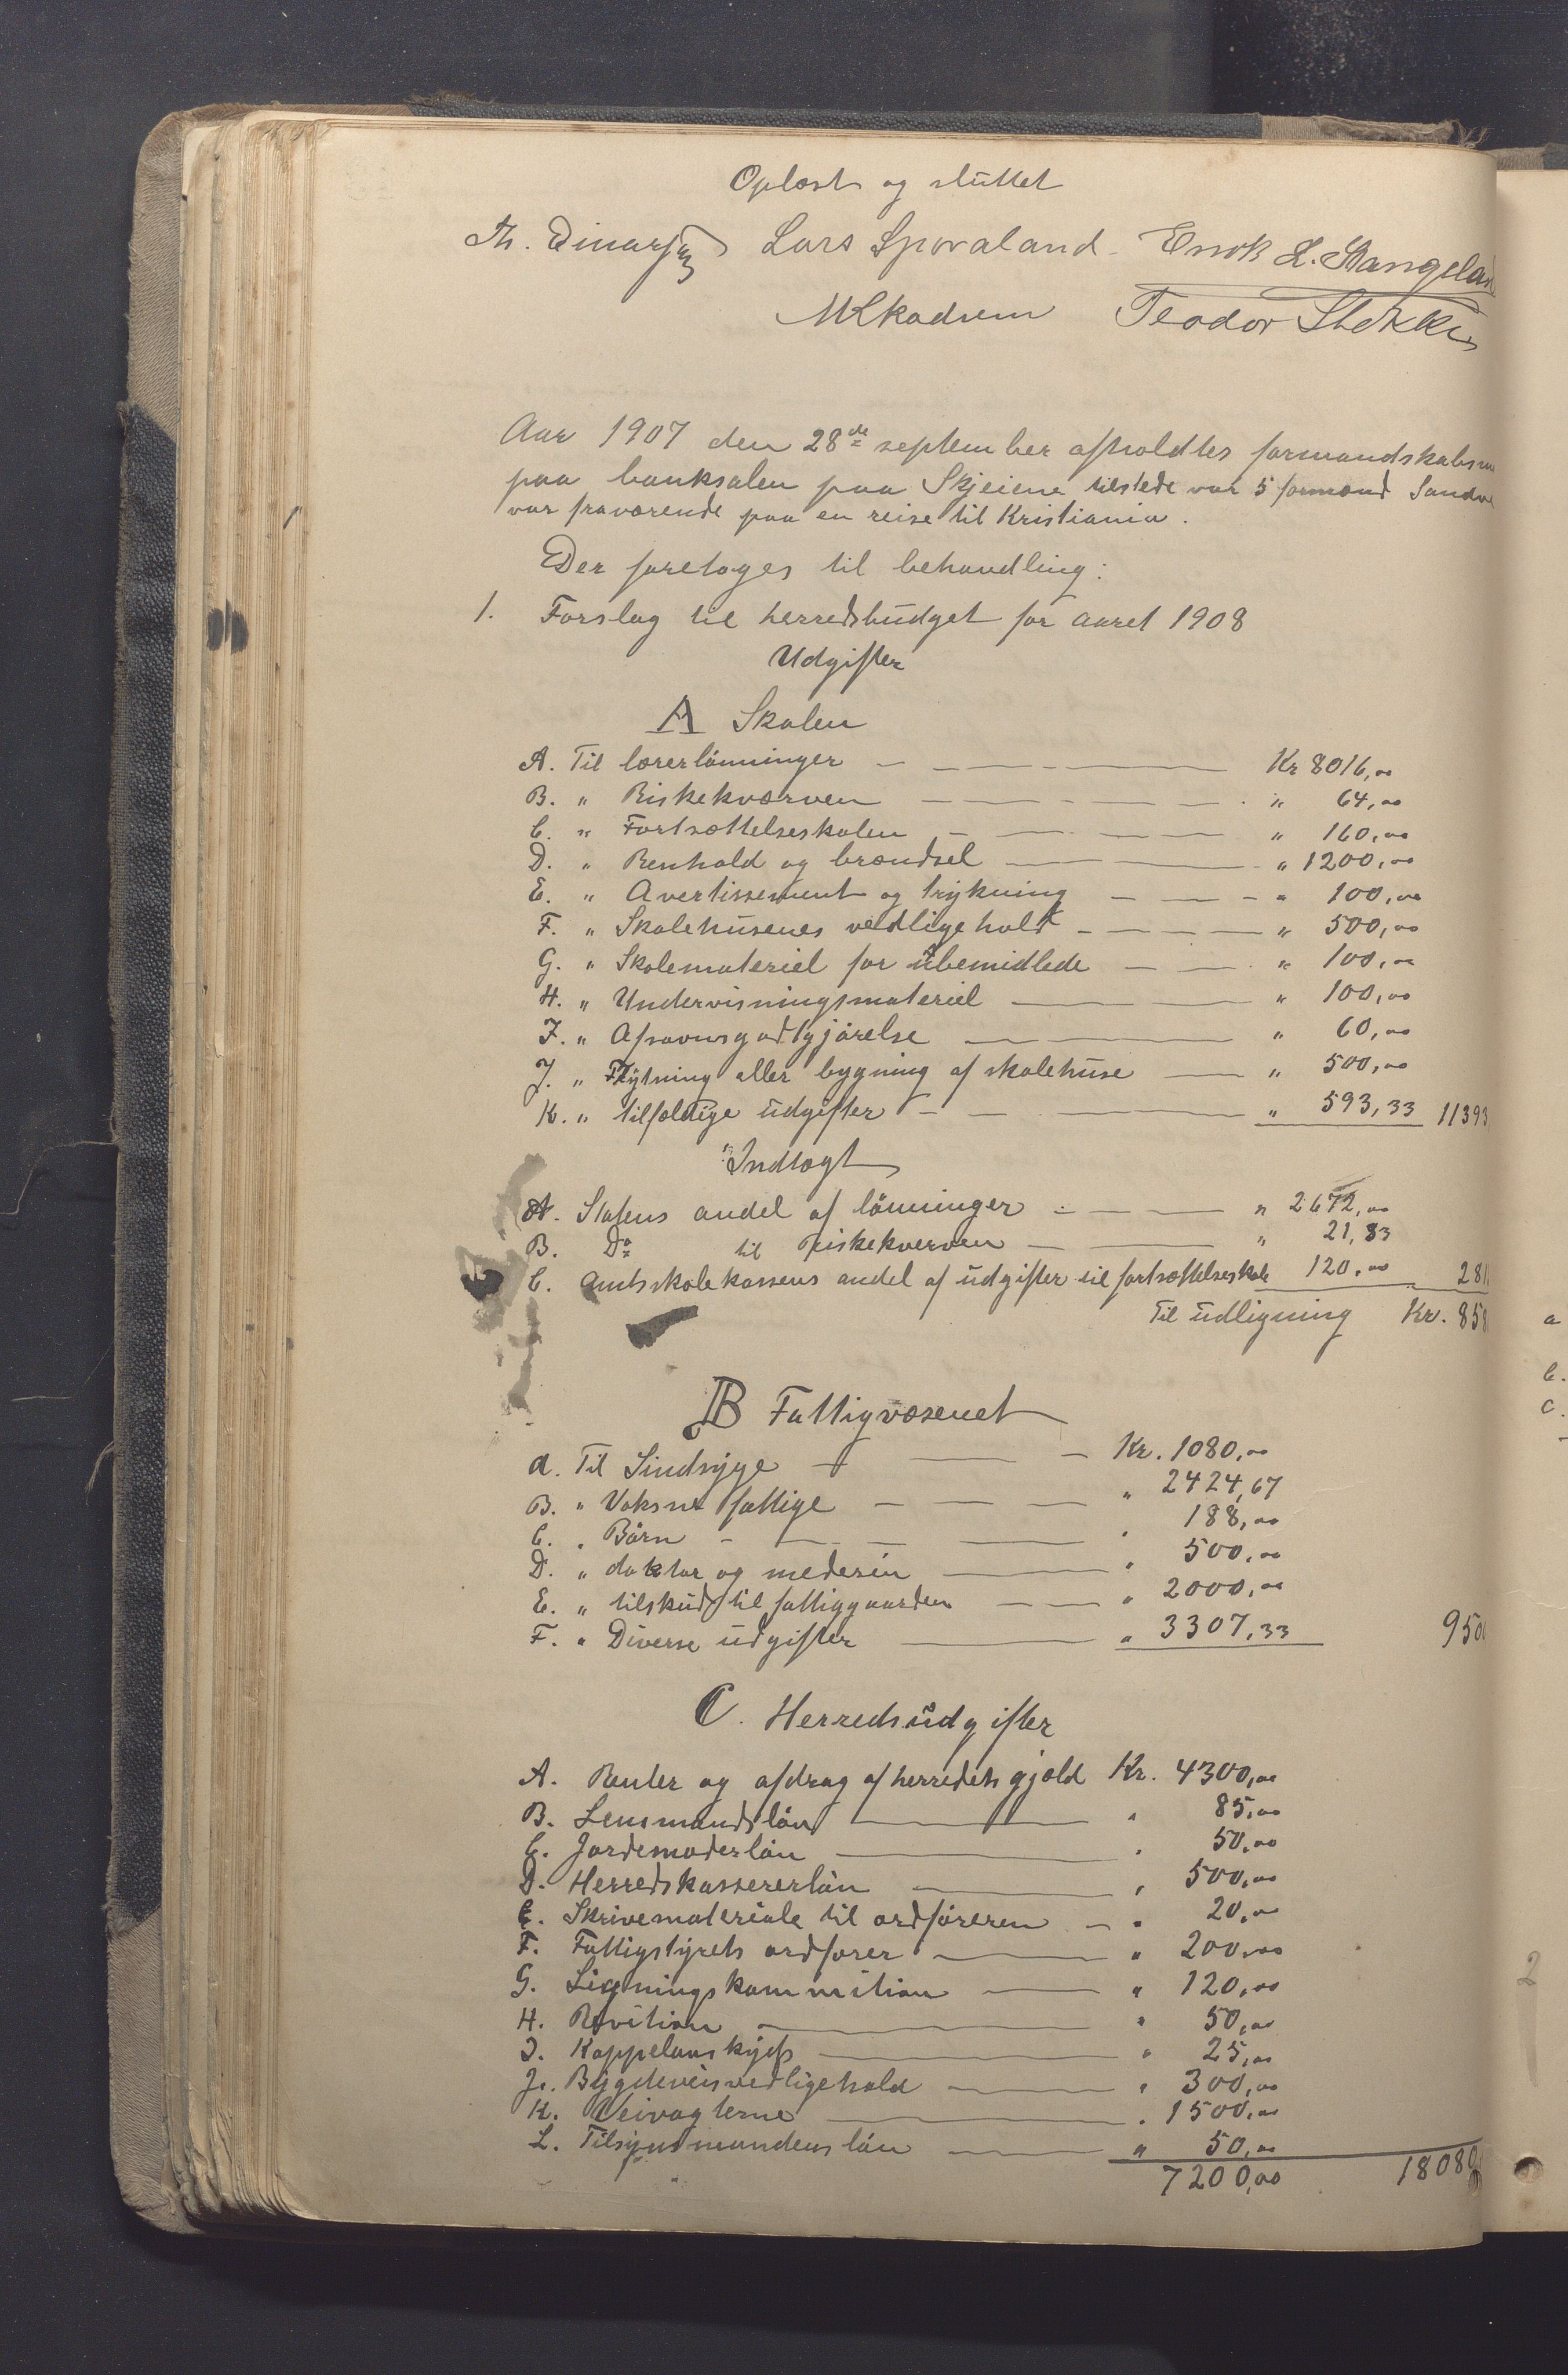 Oplæst og sluttet
Th. Einarsen Lars Sporaland. Enok L. Stangelan
M Skadsem Teodor Stokke
Aar 1907 den 28de september afholdtes formandskabsm
paa banksalen paa Skjeiene tilstede var 5 formænd Sandv
var fraværende paa en reise til Kristiania.
Der foretoges til behandling:
1. Forslag til herredsbudget for aaret 1908
Udgifter
A Skolen
A. Til lærerlønninger Kr 8016,00
B. " Riskekværven " 64,00
C. " Fortsættelseskolen " 160,00
D. " Renhold og brændsel " 1200,00
E. " Avertissement og trykning " 100,00
F. " Skolehusenes vedligehold " 500,00
G. " Skolemateriel for ubemidlede " 100,00
H. " Undervisningsmateriel " 100,00
I. " Afsavnsgodtgjørelse " 60,00
J. " Flytning eller bygning af skolehuse " 500,00
K. " tilfældige udgifter " 593,33 11393
Indtægt
A. Statens andel af lønninger " 2672,00
B. Do til Riskekverven " 21,83
C. Amtsskolekassens andel af udgifter til fortsættelseskole 120,00 281
Til udligning Kr. 858
B Fattigvæsenet
A. Til Sindsyge Kr. 1080,00
B. " Voksne fattige " 2424,67
C. " Børn " 188,00
D. " doktor og medesin " 500,00
E. " tilskud til fattiggaarden " 2000,00
F. " Diverse udgifter " 3307,33 950
C. Herredsudgifter
A. Renter og afdrag af herredets gjæld Kr. 4300,00
B. Lensmandsløn " 85,00
C. Jordemoderløn " 50,00
D. Herredskassererløn " 500,00
E. Skrivemateriale til ordføreren " 20,00
F. Fattigstyrets ordfører " 200,00
G. Ligningskommition " 120,00
H. Revition " 50,00
I. Kappelanskyds " 25,00
J. Bygdeveisvedligehold " 300,00
K. Veivogterne " 1500,00
L. Tilsynsmandens løn " 50,00
7200,00 18080